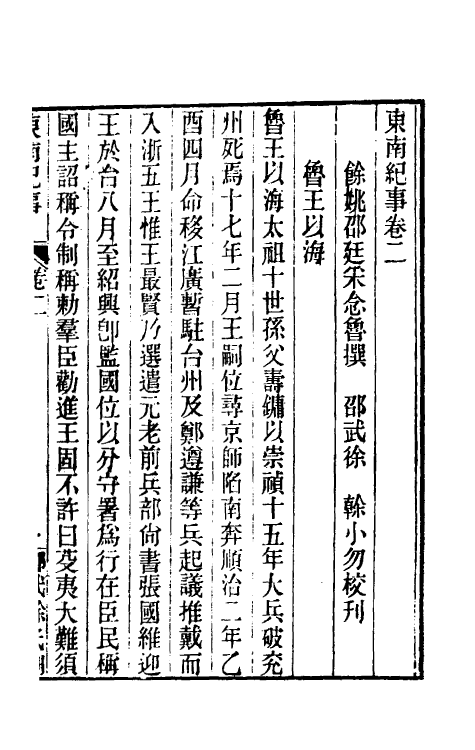 東南紀事卷二
餘姚邵廷釆念魯撰　邵武徐　榦小勿校刊
魯王以海
魯王以海太祖十世孫父壽鏞以崇禎十五年大兵破兗
州死焉十七年二月王嗣位尋京師陷南奔順治二年乙
酉四月命移江廣暫駐台州及鄭遵謙等兵起議推戴而
入浙五王惟王最賢乃選遣元老前兵部尙書張國維迎
王於台八月至紹興卽監國位以分守署爲行在臣民稱
國主詔稱令制稱勅羣臣勸進王固不許曰芟夷大難須
東南紀事　卷二